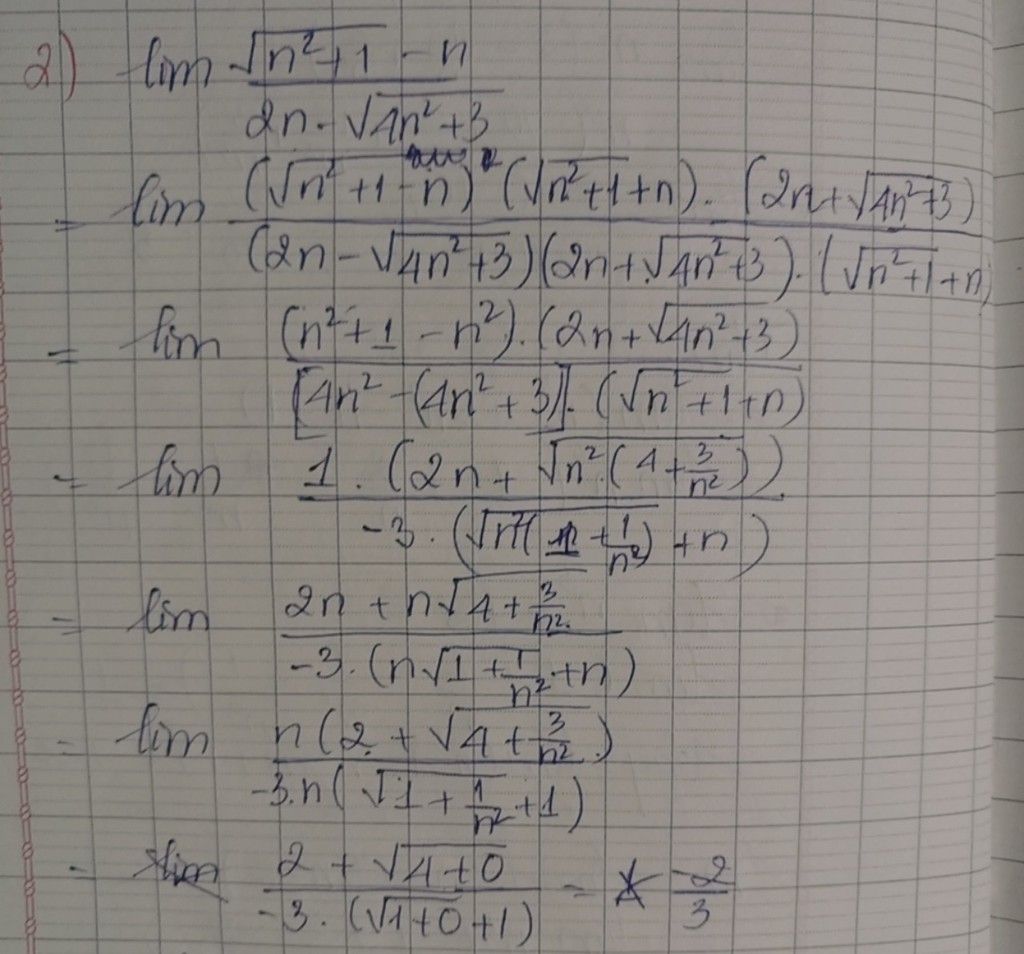 2) lim (√(n²+1) - n) / (2n - √(4n²+3))
= lim ((√(n²+1) - n) (√(n²+1) + n) . (2n + √(4n²+3))) / ((2n - √(4n²+3)) (2n + √(4n²+3)) . (√(n²+1) + n))
= lim ((n²+1 - n²) . (2n + √(4n²+3))) / ([4n² - (4n²+3)] . (√(n²+1) + n))
= lim (1 . (2n + √(n².(4 + 3/n²)))) / (-3 . (√(n²(1 + 1/n²)) + n))
= lim (2n + n√(4 + 3/n²)) / (-3 . (n√(1 + 1/n²) + n))
= lim (n(2 + √(4 + 3/n²))) / (-3.n(√(1 + 1/n²) + 1))
= (2 + √(4+0)) / (-3 . (√(1+0) + 1)) = -2/3